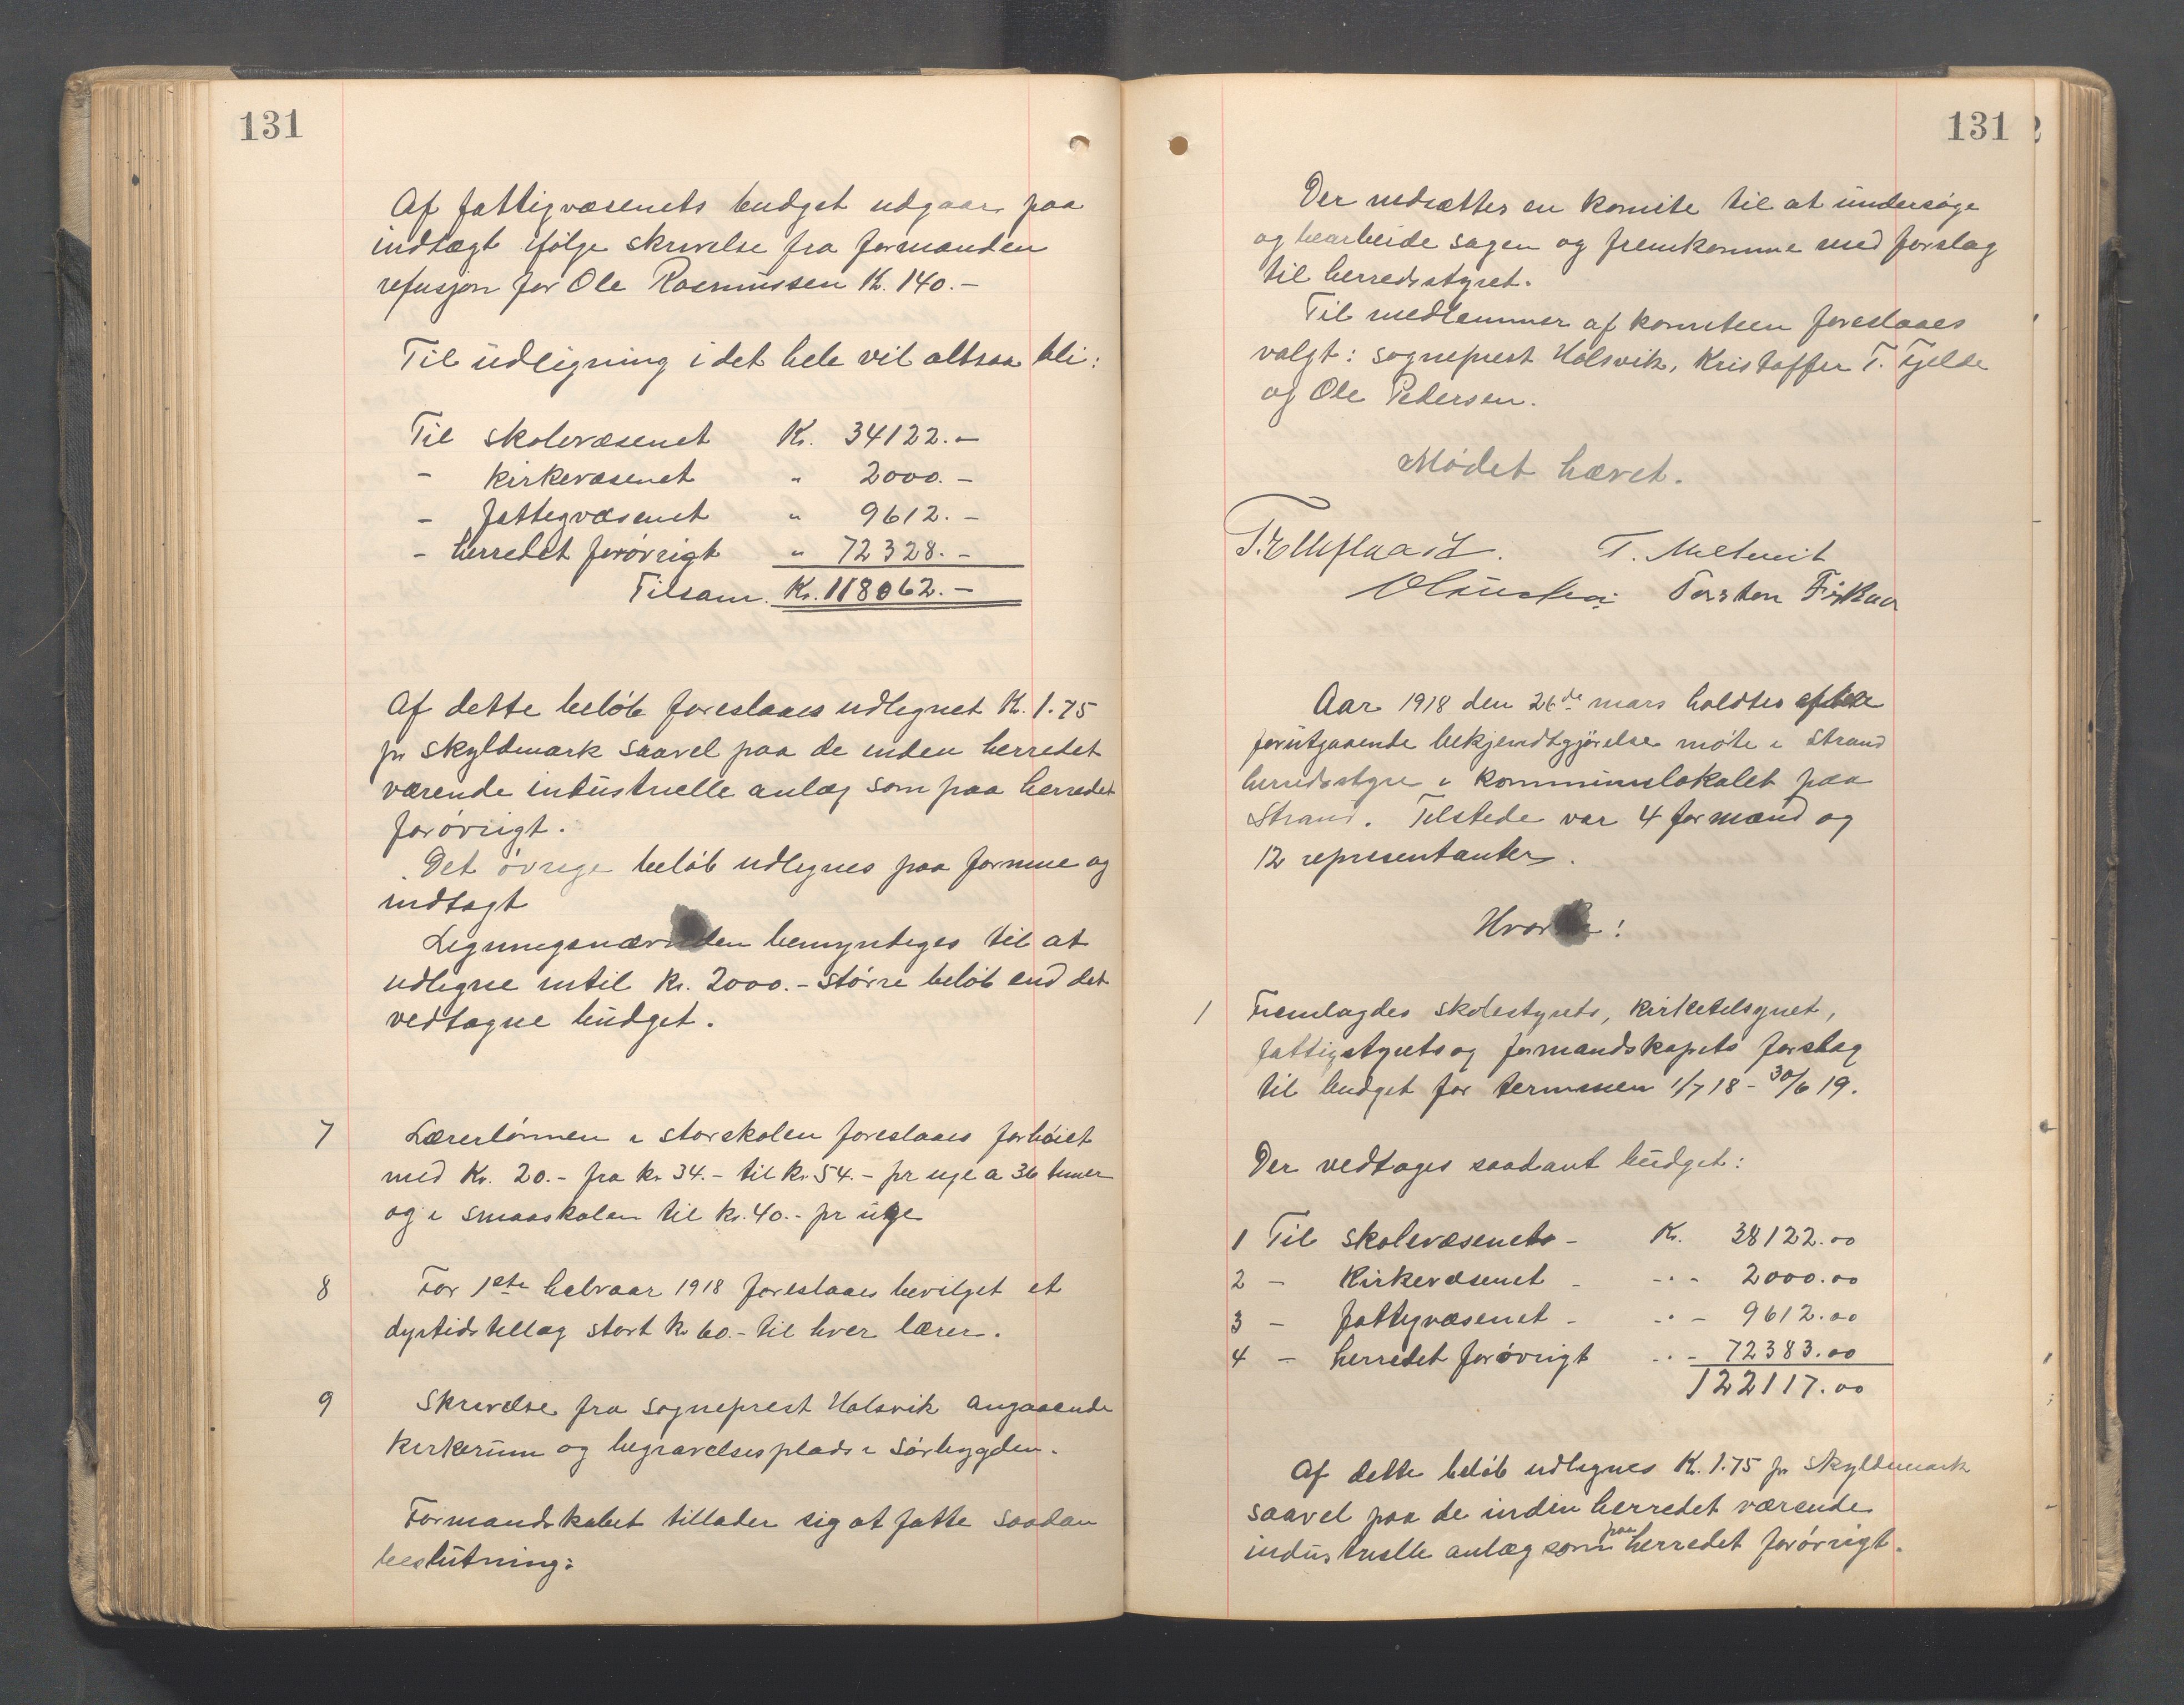 131
Af fattigvæsenets budget udgaar paa
indtægt ifølge skrivelse fra formanden
refusjon for Ole Rasmussen K. 140.-
Til udligning i det hele vil altsaa bli:
Til skolevæsenet Kr. 34122.-
- kirkevæsenet " 2000.-
- fattigvæsenet " 9612.-
- herredet forøvrigt " 72328.-
Tilsam. Kr. 118062.-
Af dette beløb foreslaaes udlignet K. 1.75
pr skyldmark saavel paa de inden herredet
værende industrielle anlæg som paa herredet
forøvrigt.
Det øvrige beløb udlignes paa formue og
indtægt
Ligningsnævnden bemyndiges til at
udligne intil kr. 2000.- større beløb end det
vedtagne budget.
7 Lærerlønnen i storskolen foreslaaes forhøiet
med Kr. 20.- fra kr 34.- til kr. 54.- pr uge a 36 timer
og i smaaskolen til kr. 40.- pr uge
8 For 1ste halvaar 1918 foreslaaes bevilget et
dyrtidstillæg stort kr 60.- til hver lærer.
9 Skrivelse fra sogneprest Holsvik angaaende
kirkerum og begravelsesplads i sørbygden.
Formandskabet tillader sig at fatte saadan
beslutning:
131
Der nedsættes en komite til at undersøge
og bearbeide sagen og fremkomme med forslag
til herredsstyret.
Til medlemmer af komiteen foreslaaes
valgt: sogneprest Holsvik, Kristoffer T. Fjelde
og Ole Pedersen.
Mødet hævet.
T.
Torsten Fiskaa
Aar 1918 den 26de mars holdtes efter
forutgaaende bekjendtgjørelse møte i Strand
herredsstyre i kommunelokalet paa
Strand. Tilstede var 4 formænd og
12 representanter.
Hvorda:
1 Fremlagdes skolestyrets, kirketilsynet,
fattigstyrets og formandskapets forslag
til budget for terminen 1/7 18 - 30/6 19.
Der vedtages saadant budget:
1 Til skolevæsenets - Kr. 38122.00
2 - Kirkevæsenet - -"- 2000.00
3 - fattigvæsenet - -"- 9612.00
4 - herredet forøvrigt -"- 72383.00
122117.00
Af dette beløb udlignes K. 1.75 pr skyldmark
saavel paa de inden herredet værende
industrielle anlæg som paa herredet forøvrigt.